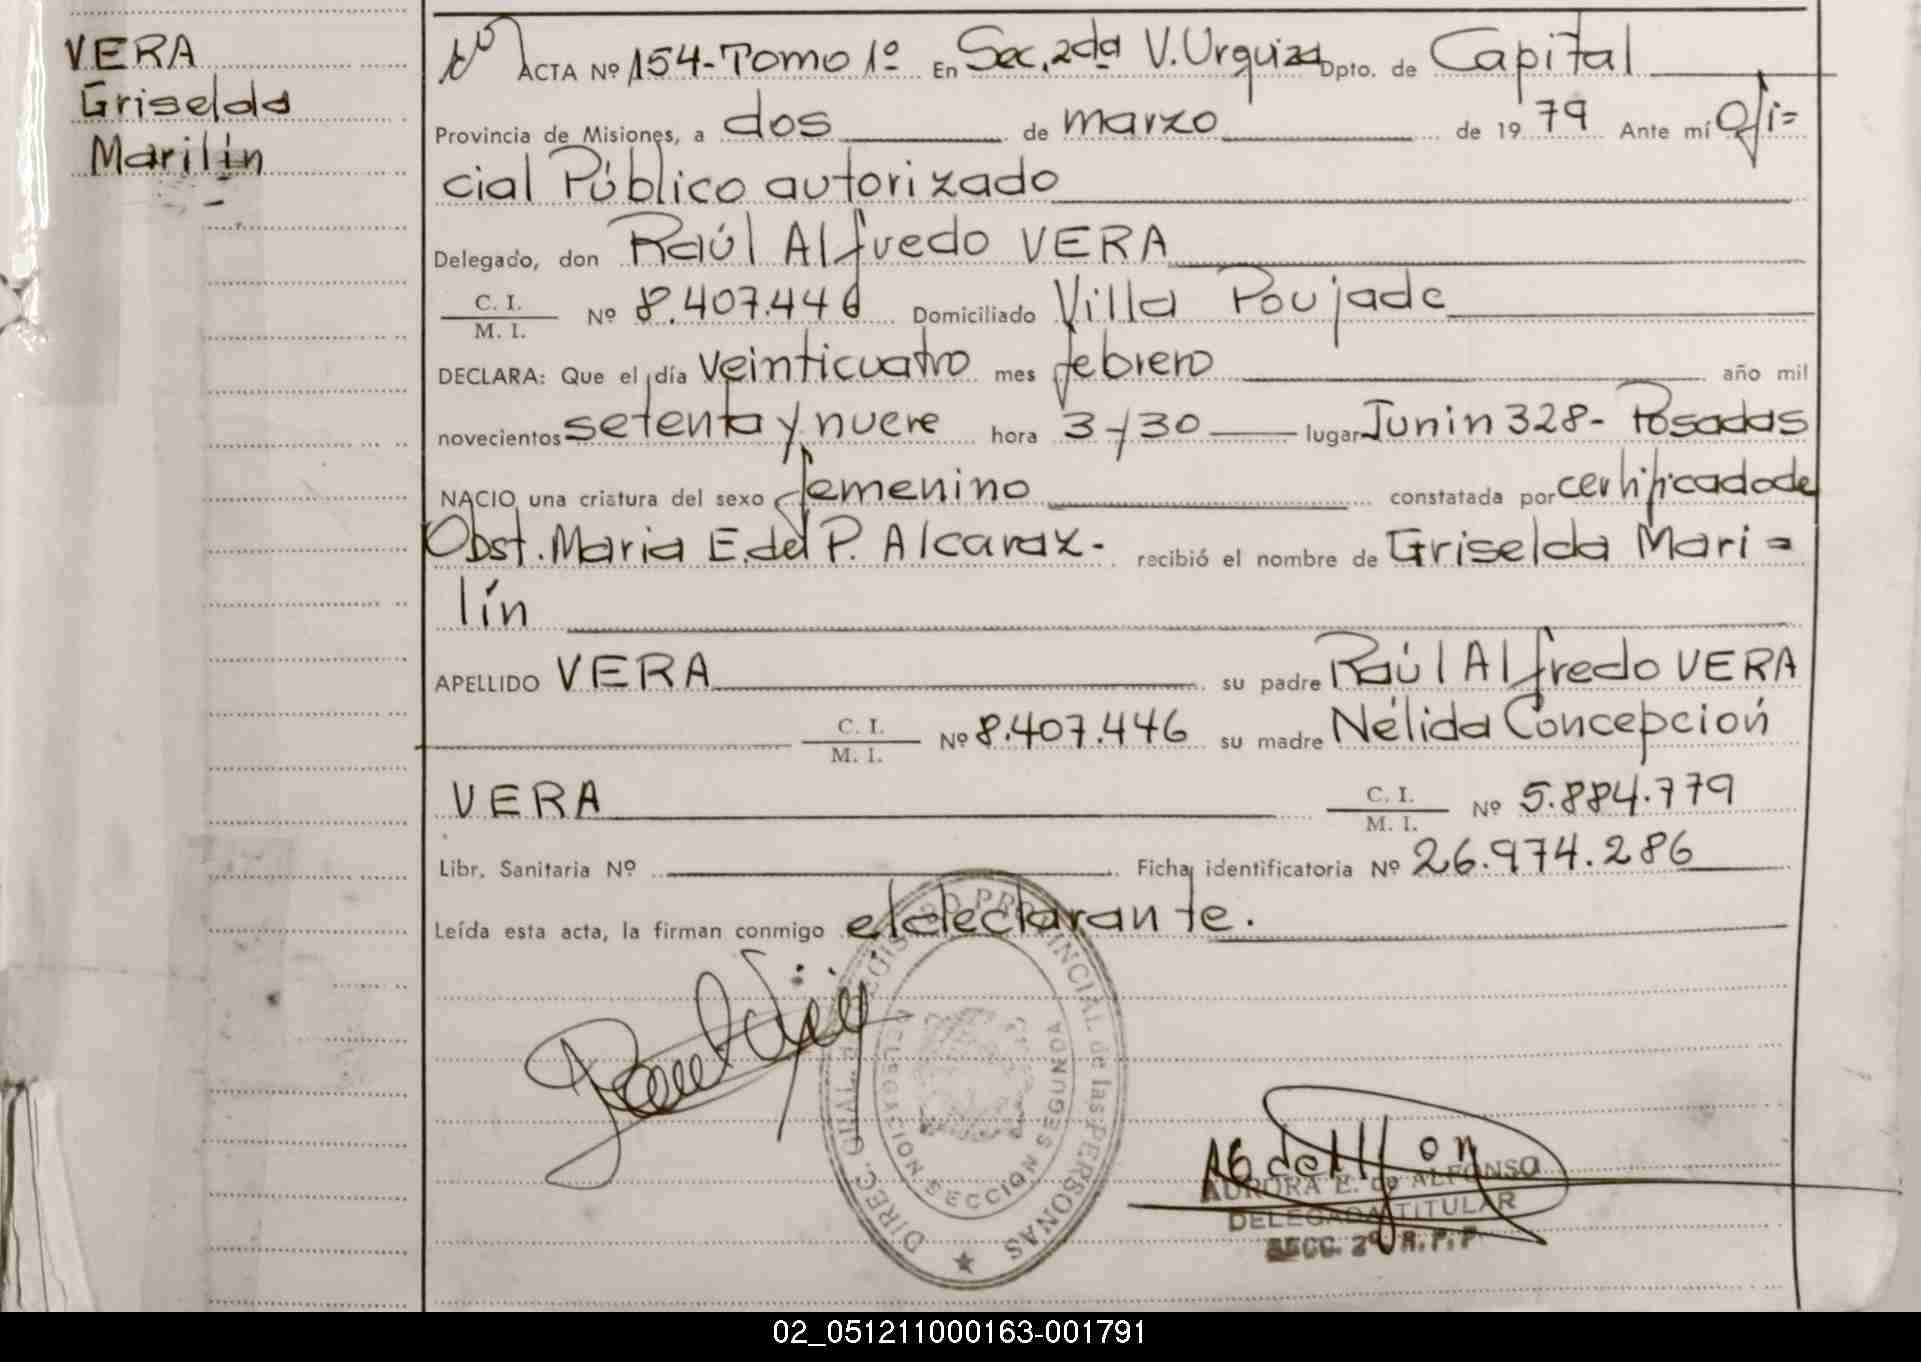 VERA
Griselda
Marilín
ACTA Nº 154-Tomo 1º En Sec. 2da V. Urquiza Dpto. de Capital
Provincia de Misiones, a dos de marzo de 1979 Ante mí Ofi=
cial Público autorizado
Delegado, don Raúl Alfredo VERA
C. I.
M. I. Nº 8.407.446 Domiciliado Villa Poujade
DECLARA: Que el día veinticuatro mes febrero año mil
novecientos setenta y nueve hora 3/30 lugar Junin 328- Posadas
NACIO una criatura del sexo femenino constatada por certificado de
Obst. Maria E. del P. Alcaraz- recibió el nombre de Griselda Mari=
lín
APELLIDO VERA su padre Raúl Alfredo VERA
C. I.
M. I. Nº 8.407.446 su madre Nélida Concepción
VERA C. I.
M. I. Nº 5.884.779
Libr. Sanitaria Nº Ficha identificatoria Nº 26.974.286
Leída esta acta, la firman conmigo el declarante.
DIREC. GRAL. REGISTRO PROVINCIAL de las PERSONAS
DELEGACION SECCION SEGUNDA
AURORA E. de ALFONSO
DELEGADA TITULAR
SECC. 2º R.P.P
02_051211000163-001791